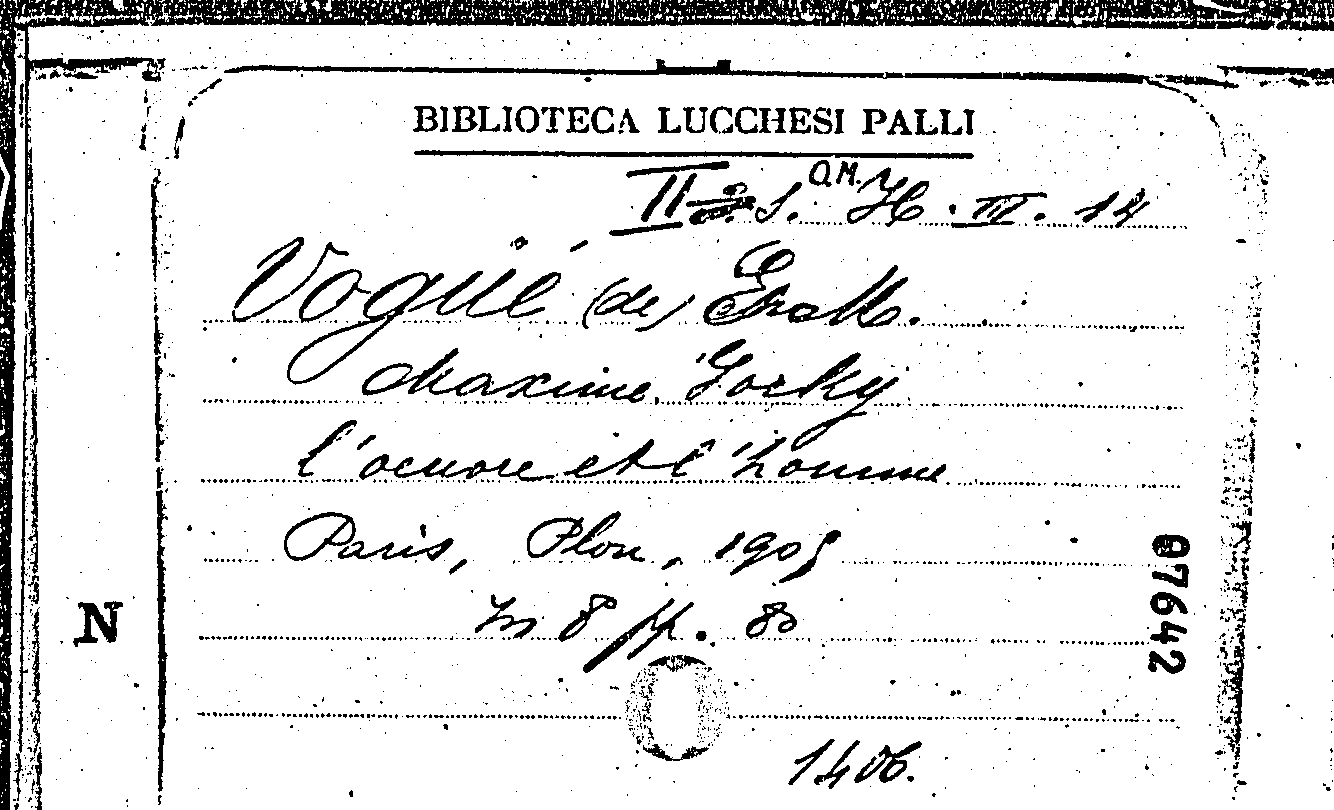 BIBLIOTECA LUCCHESI PALLI
II S. O.M. H. III. 14
Vogüé (de) E. M.
Maxime Gorky
l'oeuvre et l'homme
Paris, Plon, 1905
In 8 pp. 80
N
07642
1406.